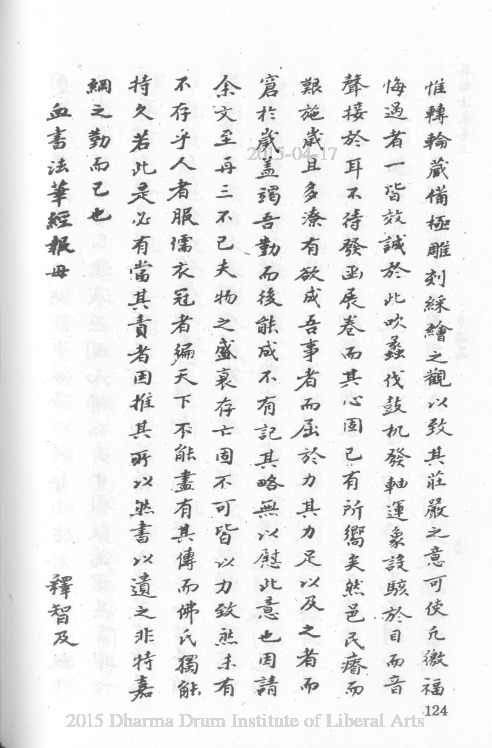 惟轉輪藏備極雕刻綵繪之觀以致其莊嚴之意可使凡徼福
悔過者一皆效誠於此吹螽伐鼓机發軸運象設駭於目而音
聲接於耳不待發函展卷而其心固已有所嚮矣然邑民瘠而
艱施歲且多潦有欲成吾事者而屈於力其力足以及之者而
窘於歲盖竭吾勤而後能成不有記其略無以慰此意也因請
余文至再三不已夫物之盛衰存亡固不可皆以力致然未有
不存乎人者服儒衣冠者徧天下不能盡有其傳而佛氏獨能
持久若此是必有當其責者因推其所以然書以遺之非特嘉
綱之勤而已也
血書法華經報母 釋智及
2015-04-17
124
2015 Dharma Drum Institute of Liberal Arts